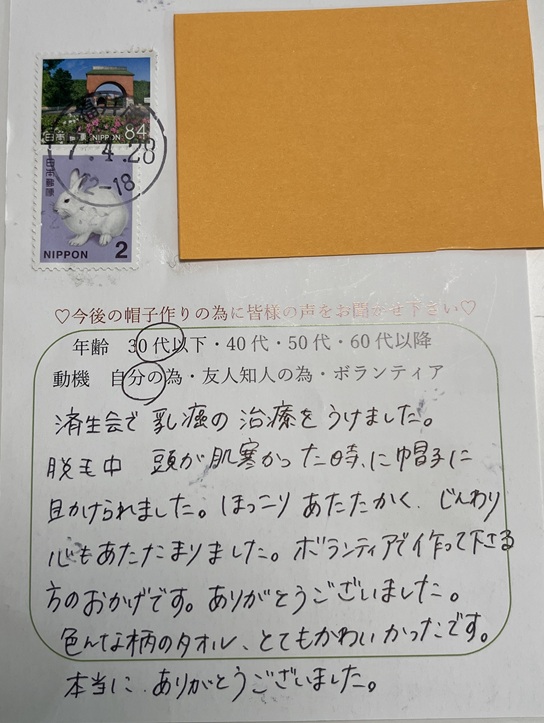 日本郵便 NIPPON 84
7.4.28
12-18
日本郵便
NIPPON 2
♡今後の帽子作りの為に皆様の声をお聞かせ下さい♡
年齢 30代以下・40代・50代・60代以降
動機 自分の為・友人知人の為・ボランティア
済生会で 乳癌の 治療をうけました。
脱毛中 頭が肌寒かった時、に帽子に
目かけられました。ほっこり あたたかく、じんわり
心もあたたまりました。ボランティアで作って下さる
方のおかげです。ありがとうございました。
色んな柄のタオル、とてもかわいかったです。
本当に、ありがとうございました。